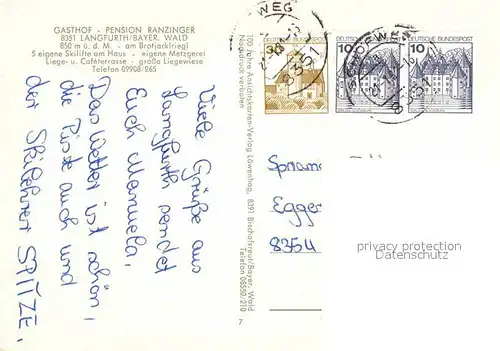 GASTHOF · PENSION RANZINGER
8351 LANGFURTH/BAYER. WALD
850 m ü. d. M. · am Brotjacklriegl
5 eigene Skilifte am Haus · eigene Metzgerei
Liege- u. Caféterrasse · große Liegewiese
Telefon 09908/265
Viele Grüße aus
Langfurth sendet
Euch Manuela,
Das Wetter ist schön,
die Piste auch und
der Skilehrer SPITZE.
100 Jahre Ansichtskarten-Verlag Löwenhag, 8391 Bischofsreut/Bayer. Wald
Nachdruck verboten
Telefon 08550/210
7
DEUTSCHE BUNDESPOST
30
DEUTSCHE BUNDESPOST
10
DEUTSCHE BUNDESPOST
10
8351
8351
Egger
8354
privacy protection
Datenschutz